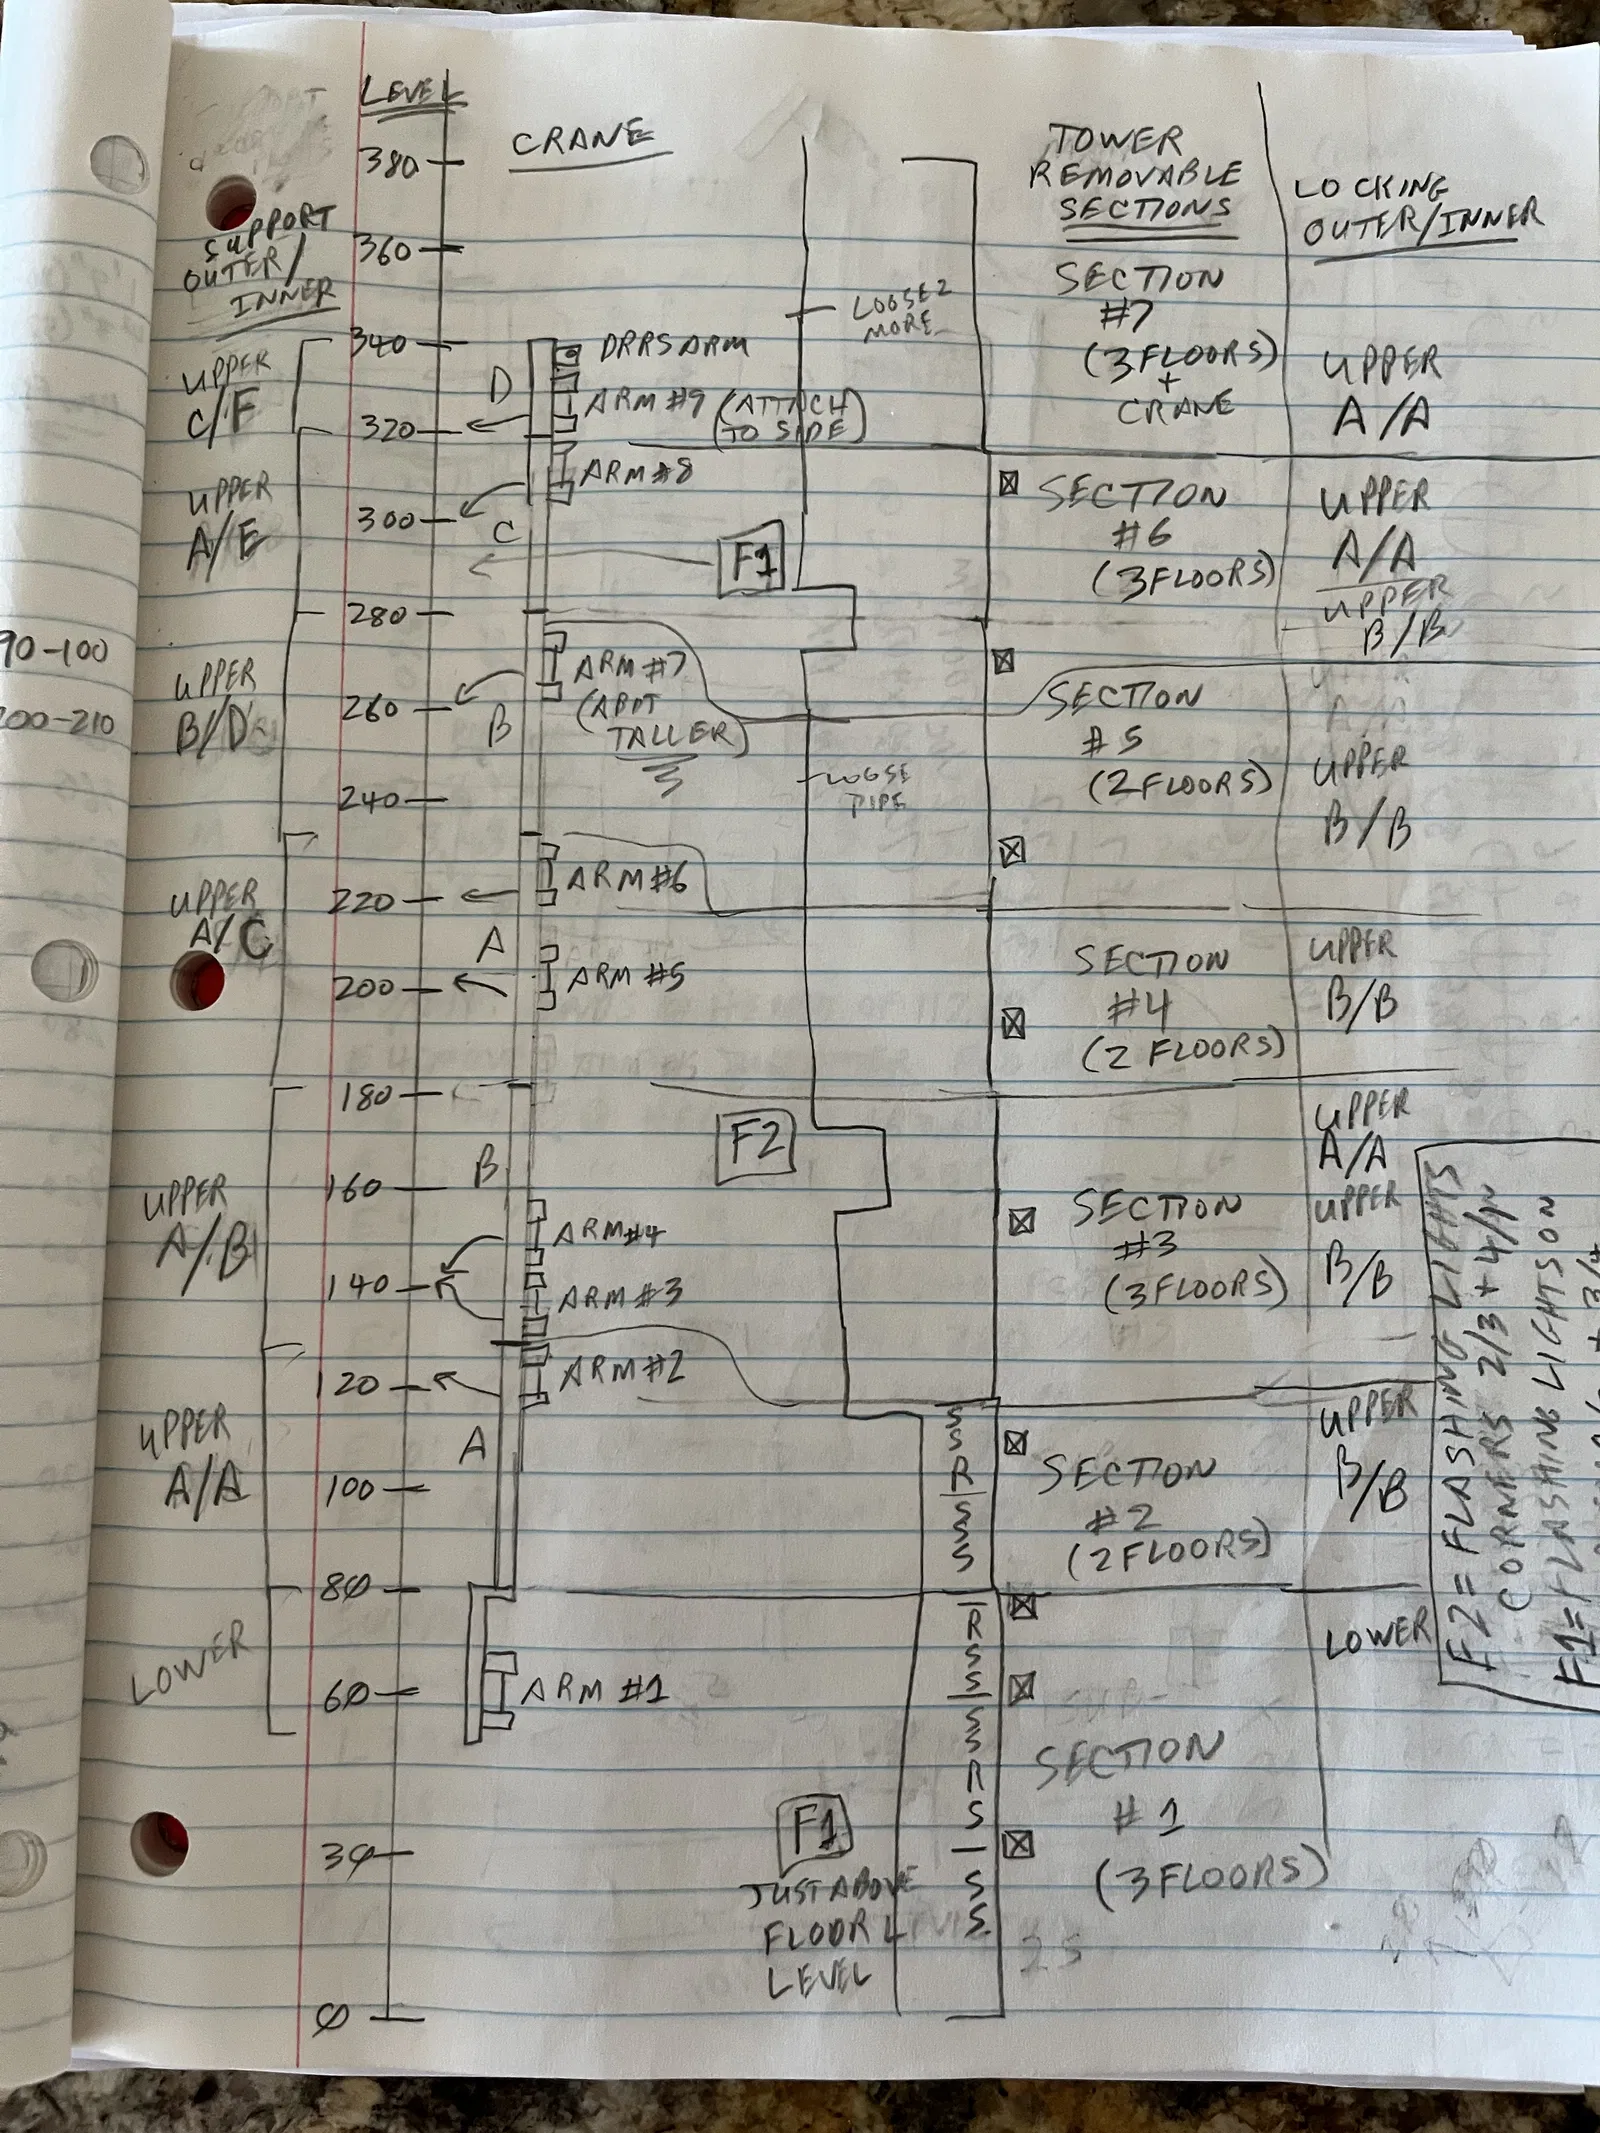 LEVEL
CRANE
TOWER
REMOVABLE
SECTIONS
LOCKING
OUTER/INNER
SUPPORT
OUTER/
INNER
380
360
340
320
300
280
260
240
220
200
180
160
140
120
100
8Ø
6Ø
3Ø
Ø
UPPER
C/F
UPPER
A/E
90-100
200-210
UPPER
B/D
UPPER
A/C
UPPER
A/B
UPPER
A/A
LOWER
D
C
B
A
B
A
DRRS ARM
ARM #9 (ATTACH
TO SIDE)
ARM #8
ARM #7
(APPT
TALLER)
ARM #6
ARM #5
ARM #4
ARM #3
ARM #2
ARM #1
LOOSE 2
MORE
F1
LOOSE
PIPE
F2
F1
JUST ABOVE
FLOOR 4
LEVEL
S
S
R
S
S
S
R
S
S
S
S
R
S
S
S
SECTION
#7
(3 FLOORS)
+
CRANE
SECTION
#6
(3 FLOORS)
SECTION
#5
(2 FLOORS)
SECTION
#4
(2 FLOORS)
SECTION
#3
(3 FLOORS)
SECTION
#2
(2 FLOORS)
SECTION
#1
(3 FLOORS)
25
UPPER
A/A
UPPER
A/A
UPPER
B/B
UPPER
B/B
UPPER
B/B
UPPER
A/A
UPPER
B/B
UPPER
B/B
LOWER
F2 = FLASHING LIGHTS
CORNERS 2/3 + 4/1N
F1 = FLASHING LIGHTS ON